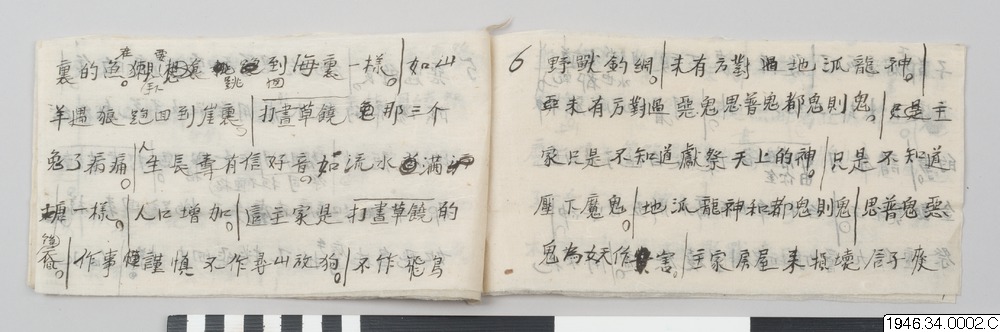 裏的 到海裏一樣。如山
羊遇狼跑回到崖裏。打晝草饒 那三个
鬼了病痛。人生長壽有信好音。如流水滿
塘一樣。人口增加。這主家是打晝草饒的
作事謹慎不作尋山放狗。不作飛鳥
6 野獸釣網。未有方對過地派龍神。
亞未有方對過惡鬼思普鬼都鬼則鬼。只是主
家只是不知道獻祭天上的神。只是不知道
壓下魔鬼。地派龍神和都鬼則鬼思普鬼惡
鬼為妖作害。主家房屋来損壞
1946.34.0002.C